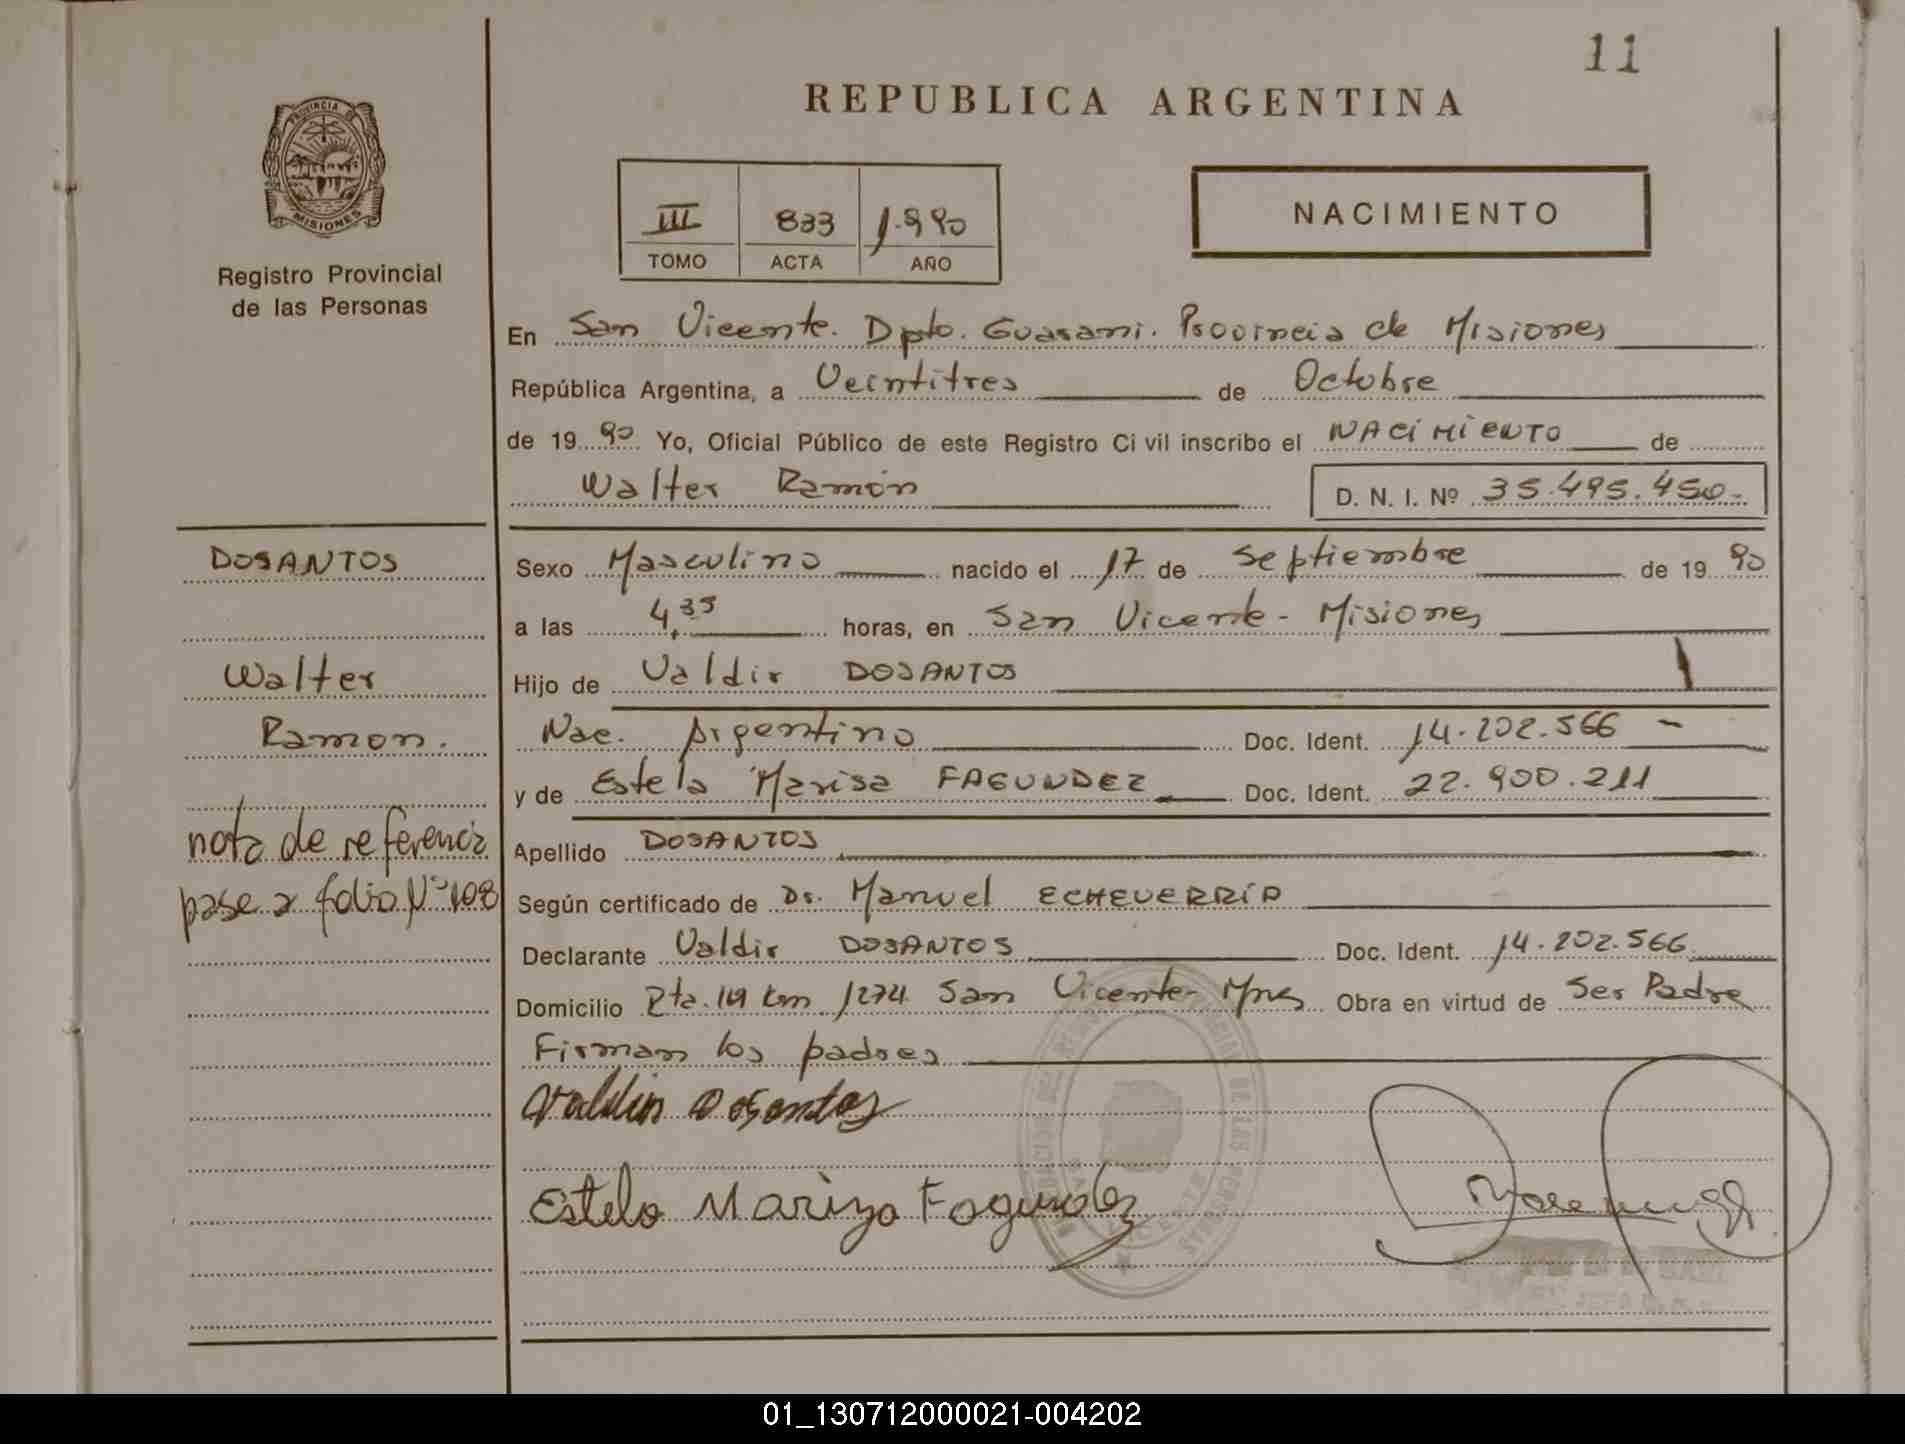 11
REPUBLICA ARGENTINA
PROVINCIA DE
MISIONES
Registro Provincial
de las Personas
III 833 1.990
TOMO ACTA AÑO
NACIMIENTO
En San Vicente. Dpto. Guarani. Provincia de Misiones
República Argentina, a Veintitres de Octubre
de 19 90 Yo, Oficial Público de este Registro Civil inscribo el NACIMIENTO de
Walter Ramón D. N. I. Nº 35.495.450-
DOSANTOS
Walter
Ramon.
nota de referencia
pase a folio Nº 108
Sexo Masculino nacido el 17 de Septiembre de 19 90
a las 4,35 horas, en San Vicente - Misiones
Hijo de Valdir DOSANTOS
Nac. Argentino Doc. Ident. 14.202.566 -
y de Estela Marisa FAGUNDEZ Doc. Ident. 22.900.211
Apellido DOSANTOS
Según certificado de Dr. Manuel ECHEVERRÍA
Declarante Valdir DOSANTOS Doc. Ident. 14.202.566
Domicilio Rta. 14 km 1274 San Vicente- Mnes Obra en virtud de Ser Padre
Firman los padres
Valdir Dosantos
Estela Mariza Fagundez
01_130712000021-004202